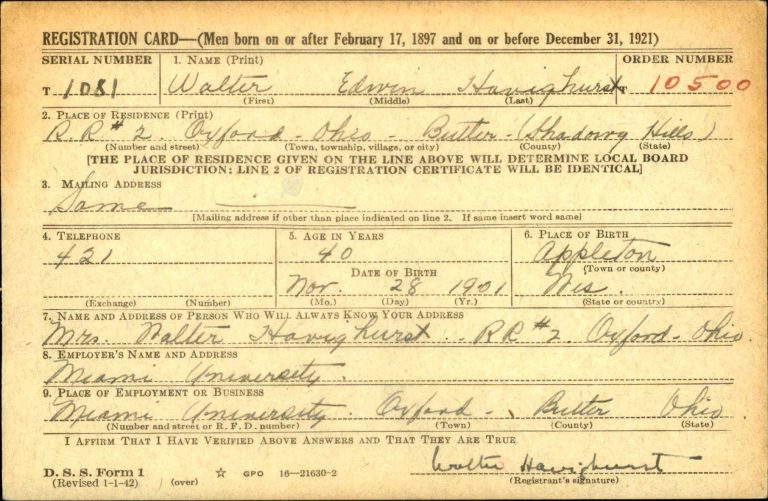 REGISTRATION CARD—(Men born on or after February 17, 1897 and on or before December 31, 1921)
SERIAL NUMBER 1. NAME (Print) ORDER NUMBER
T 1081 Walter Edwin Havighurst T 10500
(First) (Middle) (Last)
2. PLACE OF RESIDENCE (Print)
R.R #2. Oxford - Ohio - Butler - (Shadowy Hills)
(Number and street) (Town, township, village, or city) (County) (State)
[THE PLACE OF RESIDENCE GIVEN ON THE LINE ABOVE WILL DETERMINE LOCAL BOARD
JURISDICTION; LINE 2 OF REGISTRATION CERTIFICATE WILL BE IDENTICAL]
3. MAILING ADDRESS
Same
[Mailing address if other than place indicated on line 2. If same insert word same]
4. TELEPHONE 5. AGE IN YEARS 6. PLACE OF BIRTH
421 40 Appleton
DATE OF BIRTH (Town or county)
Nov. 28 1901 Wis.
(Exchange) (Number) (Mo.) (Day) (Yr.) (State or country)
7. NAME AND ADDRESS OF PERSON WHO WILL ALWAYS KNOW YOUR ADDRESS
Mrs. Walter Havighurst. RR #2 Oxford - Ohio
8. EMPLOYER'S NAME AND ADDRESS
Miami University.
9. PLACE OF EMPLOYMENT OR BUSINESS
Miami University. Oxford - Butler Ohio
(Number and street or R. F. D. number) (Town) (County) (State)
I AFFIRM THAT I HAVE VERIFIED ABOVE ANSWERS AND THAT THEY ARE TRUE
Walter Havighurst
D. S. S. Form 1 ☆ GPO 16—21630-2
(Revised 1-1-42) (over) (Registrant's signature)